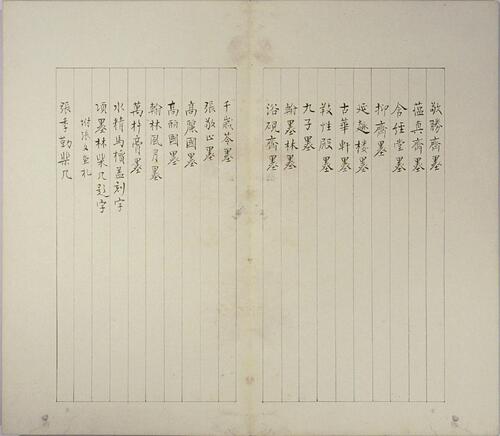 敬勝齋墨
蘊真齋墨
含任堂墨
抑齋墨
延趣樓墨
古華軒墨
敕性殿墨
九子墨
翰墨林墨
浴硯齋墨
千歲苓墨
張敬止墨
高麗國墨
高麗國墨
翰林風月墨
萬杵膏墨
水精馬檳蓋刻字
項墨林柴几題字
附張文魚札
張季勤柴几